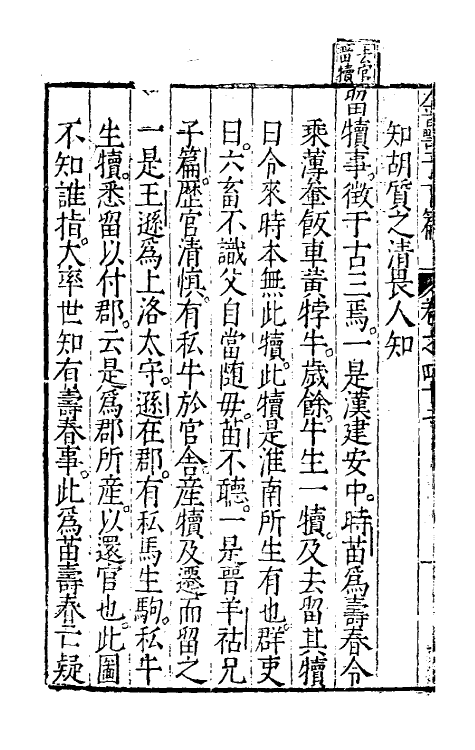 去官
留犢
知胡質之清畏人知
留犢事。徵于古三焉。一是漢建安中。時苗爲壽春令
乘薄軬飯車黃牸牛。歲餘。牛生一犢。及去留其犢
曰令來時本無此犢。此犢是淮南所生有也。群吏
曰。六畜不識父自當随毋。苗不聽。一是晉羊祜兄
子篇。歷官清慎。有私牛於官舍。産犢及遷而留之
一是王遜爲上洛太守。遜在郡。有私馬生駒。私牛
生犢。悉留以付郡。云是爲郡所産。以還官也。此圖
不知誰指。大率世知有壽春事。此爲苗壽春亡疑